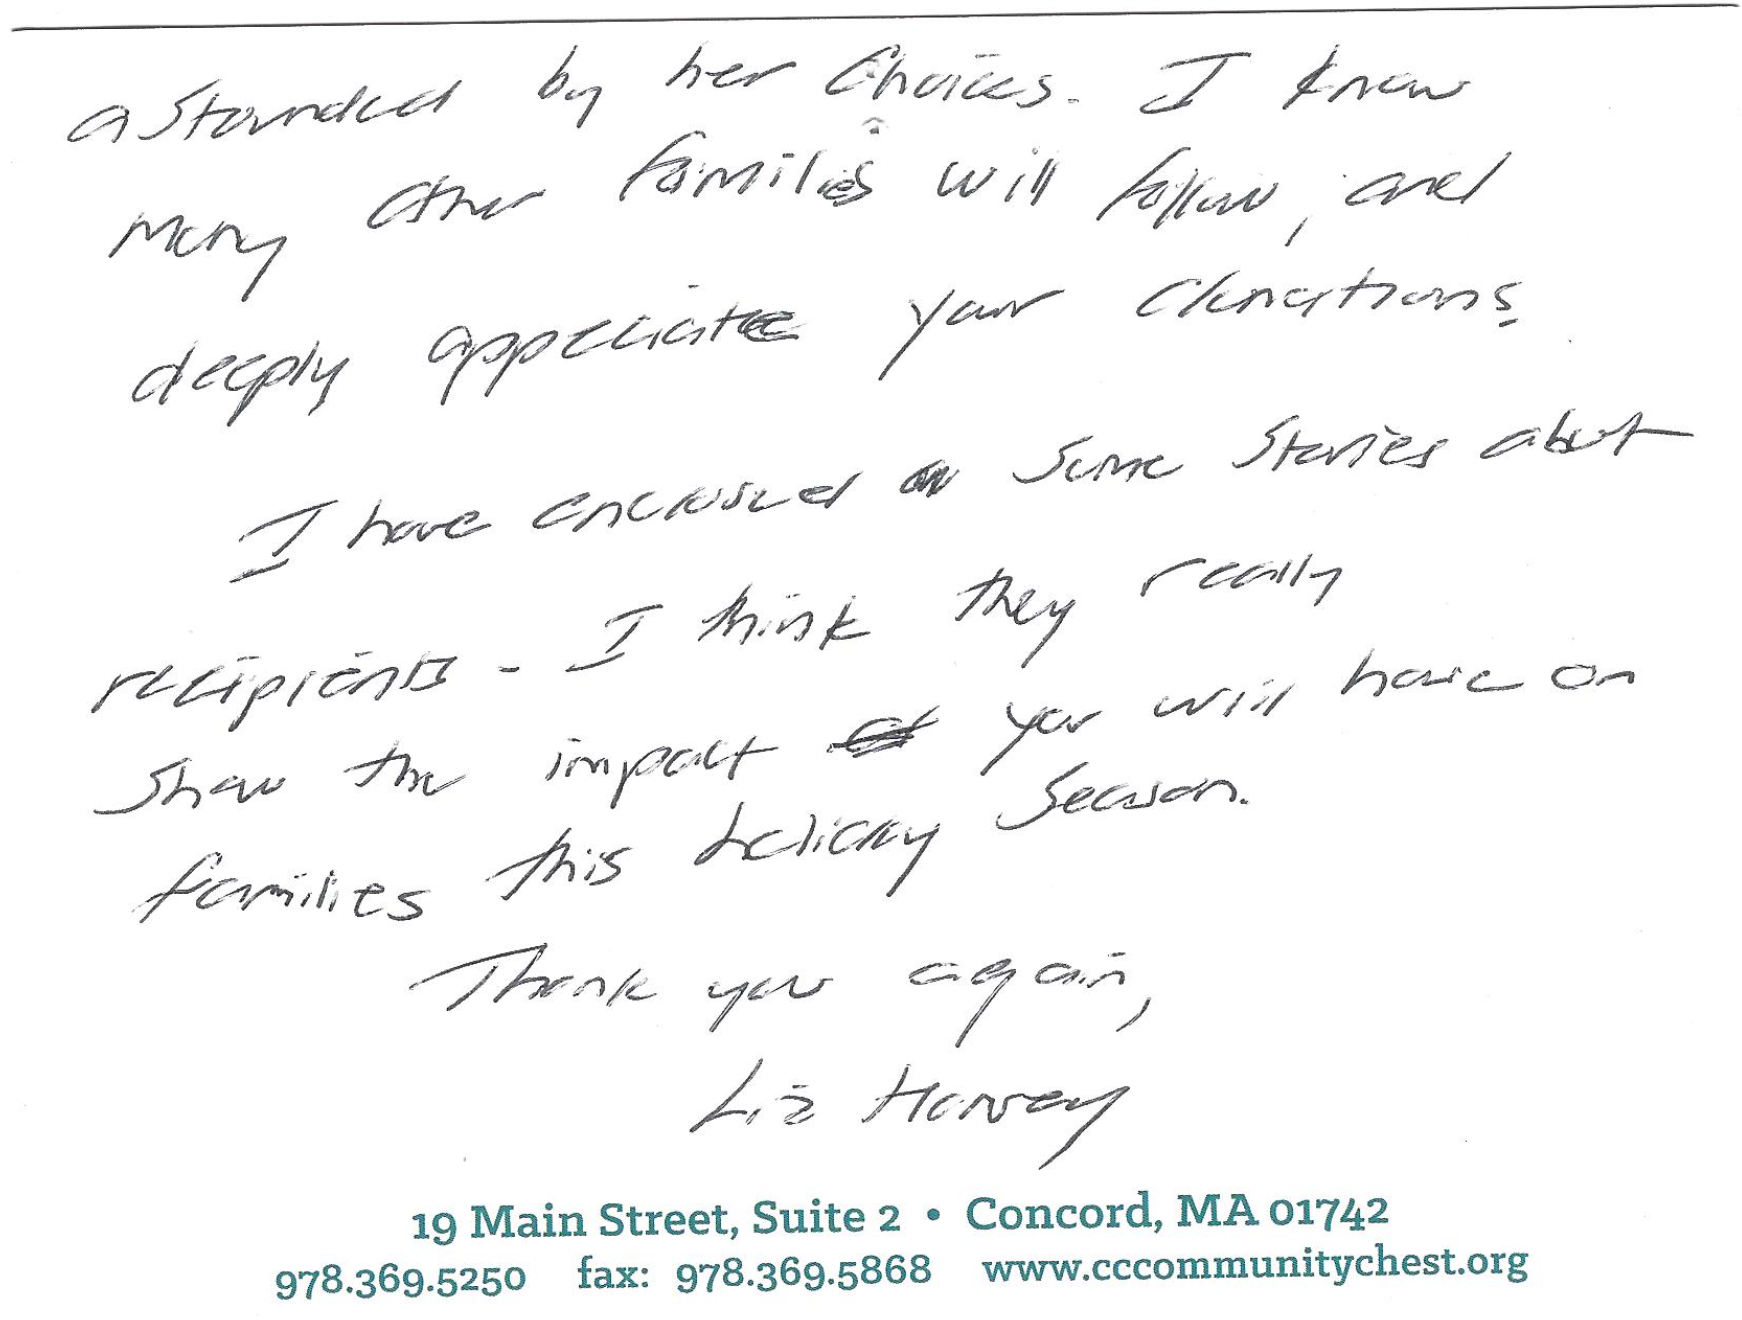 astounded by her choices. I know
many other families will follow, and
deeply appreciate your donations.
I have enclosed some stories about
recipients - I think they really
show the impact you will have on
families this holiday season.
Thank you again,
Liz Harvey
19 Main Street, Suite 2 • Concord, MA 01742
978.369.5250 fax: 978.369.5868 www.cccommunitychest.org